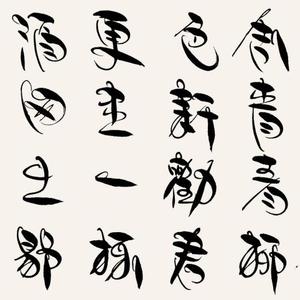 舍青青柳
色新勸君
更盡一杯
酒西出陽